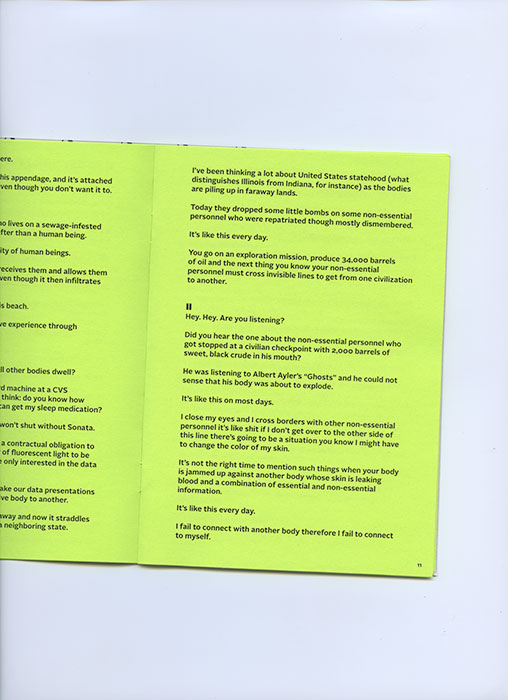 ere.
his appendage, and it's attached
ven though you don't want it to.
o lives on a sewage-infested
fter than a human being.
ity of human beings.
receives them and allows them
ven though it then infiltrates
s beach.
ve experience through
ll other bodies dwell?
d machine at a CVS
think: do you know how
can get my sleep medication?
won't shut without Sonata.
a contractual obligation to
of fluorescent light to be
e only interested in the data
ake our data presentations
ve body to another.
away and now it straddles
neighboring state.
I've been thinking a lot about United States statehood (what
distinguishes Illinois from Indiana, for instance) as the bodies
are piling up in faraway lands.
Today they dropped some little bombs on some non-essential
personnel who were repatriated though mostly dismembered.
It's like this every day.
You go on an exploration mission, produce 34,000 barrels
of oil and the next thing you know your non-essential
personnel must cross invisible lines to get from one civilization
to another.
II
Hey. Hey. Are you listening?
Did you hear the one about the non-essential personnel who
got stopped at a civilian checkpoint with 2,000 barrels of
sweet, black crude in his mouth?
He was listening to Albert Ayler's "Ghosts" and he could not
sense that his body was about to explode.
It's like this on most days.
I close my eyes and I cross borders with other non-essential
personnel it's like shit if I don't get over to the other side of
this line there's going to be a situation you know I might have
to change the color of my skin.
It's not the right time to mention such things when your body
is jammed up against another body whose skin is leaking
blood and a combination of essential and non-essential
information.
It's like this every day.
I fail to connect with another body therefore I fail to connect
to myself.
11